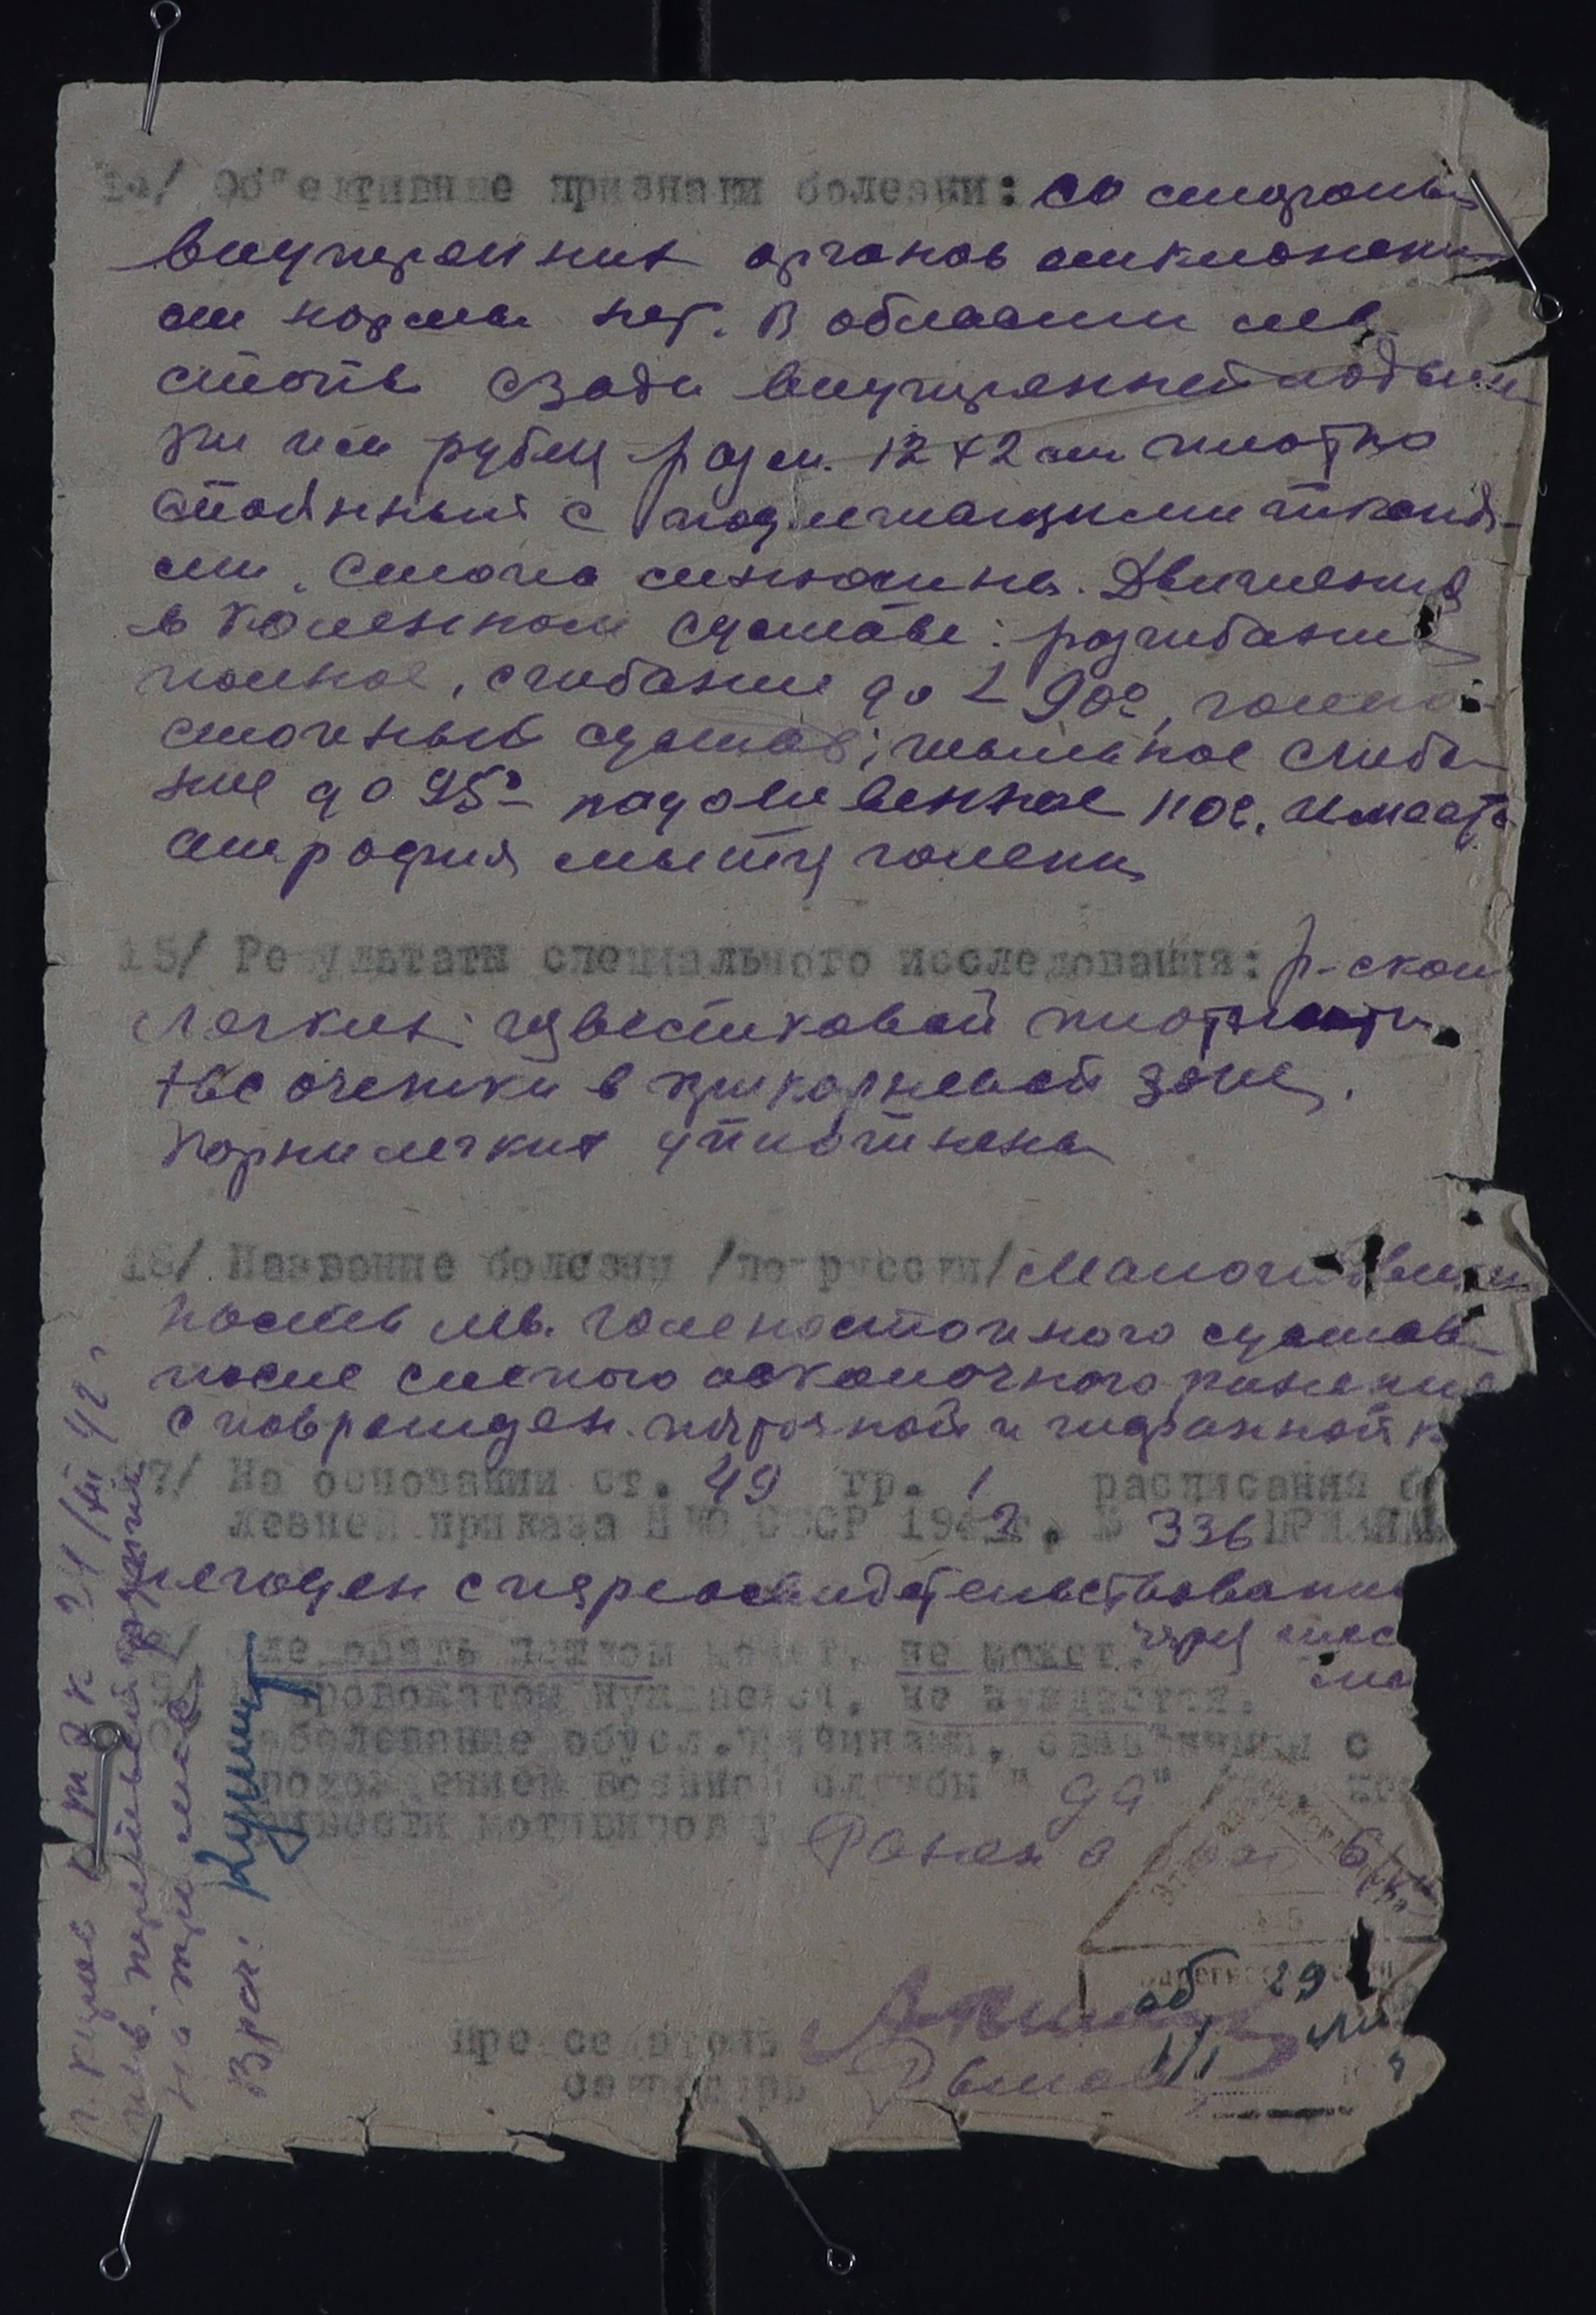 14/ Об"ективные признаки болезни: со стороны
внутренних органов отклонени
от нормы нет. В области лев.
стопы сзади внутренней лодыж
ки им рубец разм. 12 х 2 см плотно
спаянный с подлежащими тканя-
ми. Стопа синюшна. Движения
в коленном суставе: разгибание
полное, сгибание до ∠ 90°, голено-
стопный сустав; тыльное сгиба-
ние до 95° подошвенное 110°. Имеется
атрофия мышц голени
15/ Результаты специального исследования: р-скоп
Легких: известковой плотности
tbc очажки в прикорневой зоне.
Корни легких уплотнены
16/ Название болезни /по-русски/ Малоподвиж
ность лев. голеностопного сустава
после слепого осколочного ранения
с поврежден. пяточной и таранной к
17/ На основании ст. 49 гр. 1 расписания бо
лезней приказа НКО СССР 1942 г. № 336 ПРИЗНАН
негоден с переосвидетельствовани
через шес
ме
следовать пешком может, не может.
провожатом нуждается, не нуждается.
заболевание обусл. причинами, связанными с
прохождением военной службы "да"
Ранен в 6
Председатель
секретарь
об 29
Врач: Кушнир